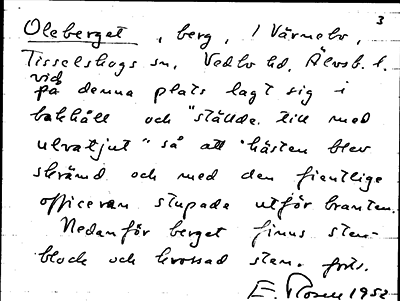 3
Oleberget, berg, i Värnebo,
Tisselskogs sn, Vedbo hd, Älvsb. l.
vid
på denna plats lagt sig i
bakhåll och "ställde till med
ulvatjut" så att hästen blev
skrämd och med den fientlige
officeren stupade utför branten.
Nedanför berget finns sten-
block och krossad sten. forts.
E. Rosen 1952